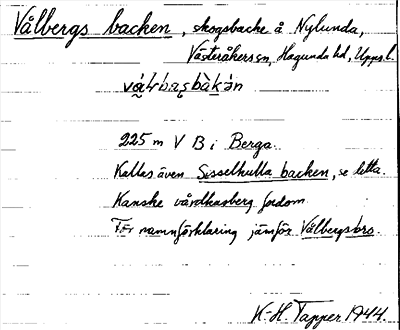 Vålbergs backen, skogsbacke å Nylunda,
Västeråkers sn, Hagunda hd, Upps. l.
225 m V B i Berga.
Kallas även Sisselhulla backen, se detta.
Kanske vårdkasberg fordom
För namnförklaring jämför Vålbergsbro.
K-H. Tapper 1944.